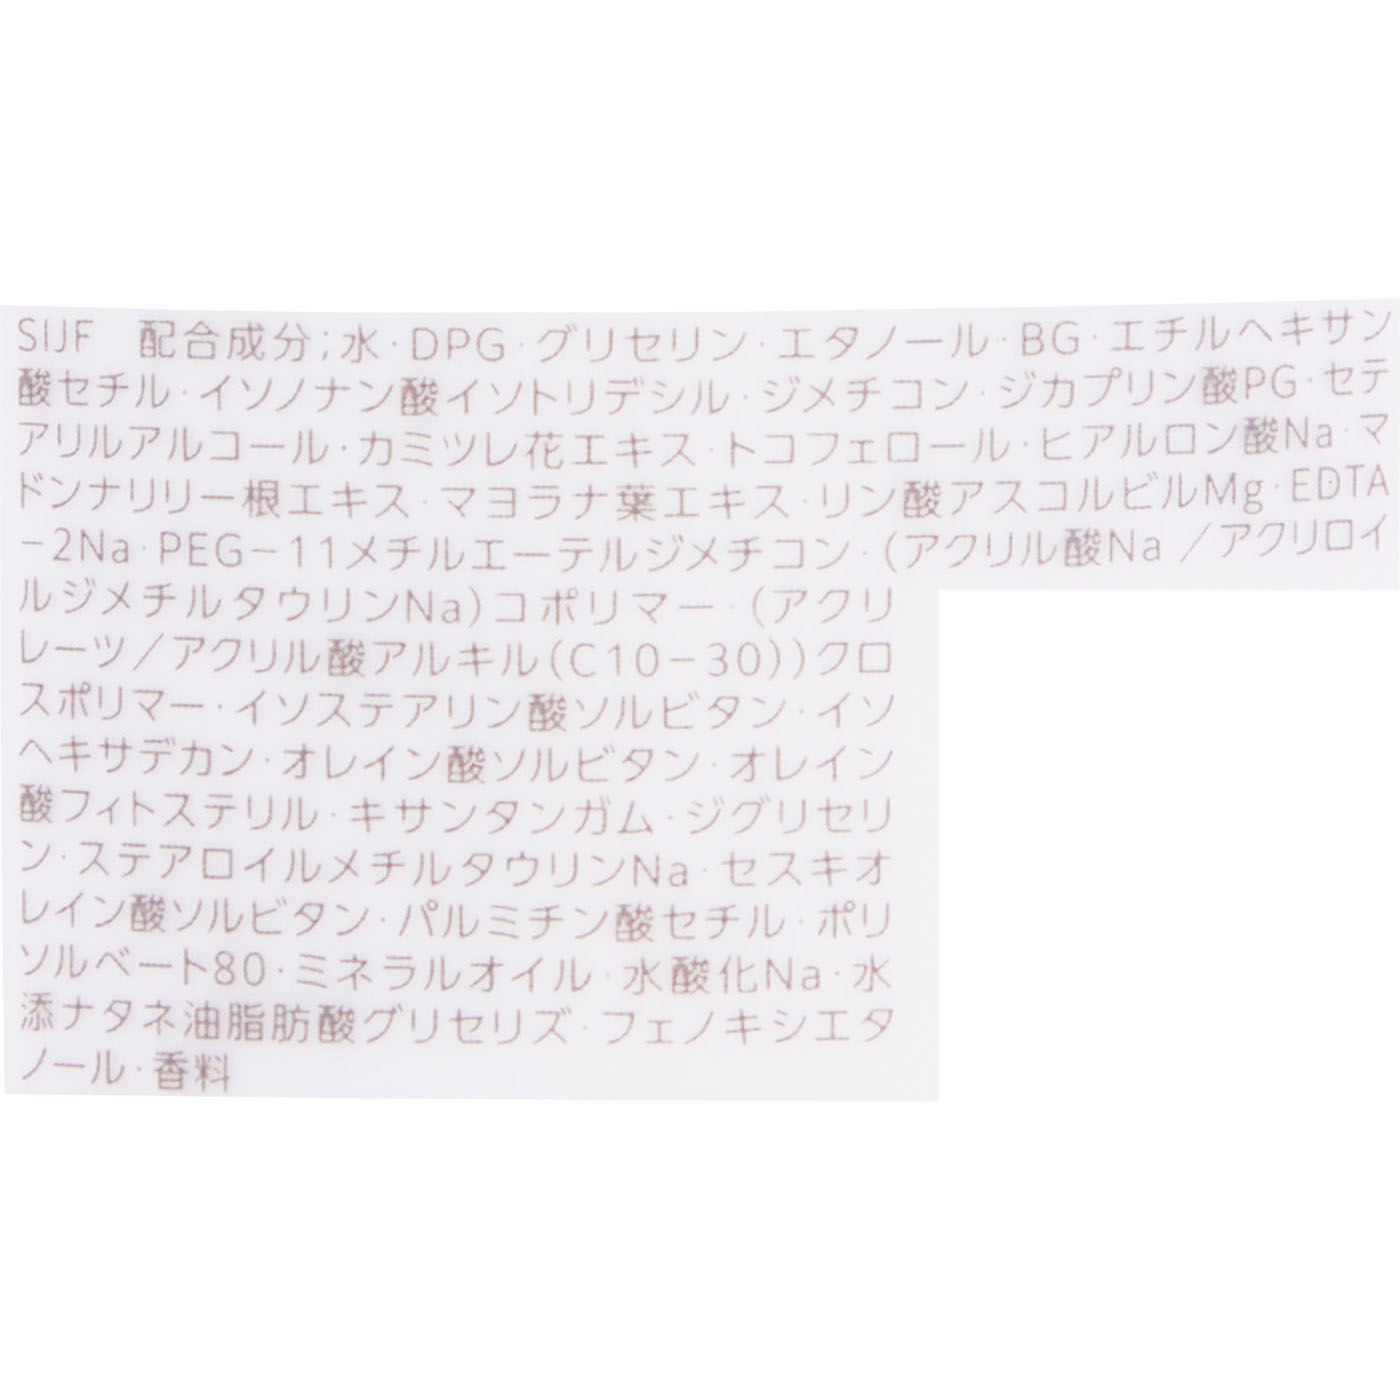 SIJF　配合成分;水・DPG・グリセリン・エタノール・BG・エチルヘキサン
酸セチル・イソノナン酸イソトリデシル・ジメチコン・ジカプリン酸PG・セテ
アリルアルコール・カミツレ花エキス・トコフェロール・ヒアルロン酸Na・マ
ドンナリリー根エキス・マヨラナ葉エキス・リン酸アスコルビルMg・EDTA
−2Na・PEG−11メチルエーテルジメチコン・(アクリル酸Na／アクリロイ
ルジメチルタウリンNa)コポリマー・(アクリ
レーツ／アクリル酸アルキル(C10−30))クロ
スポリマー・イソステアリン酸ソルビタン・イソ
ヘキサデカン・オレイン酸ソルビタン・オレイン
酸フィトステリル・キサンタンガム・ジグリセリ
ン・ステアロイルメチルタウリンNa・セスキオ
レイン酸ソルビタン・パルミチン酸セチル・ポリ
ソルベート80・ミネラルオイル・水酸化Na・水
添ナタネ油脂肪酸グリセリズ・フェノキシエタ
ノール・香料